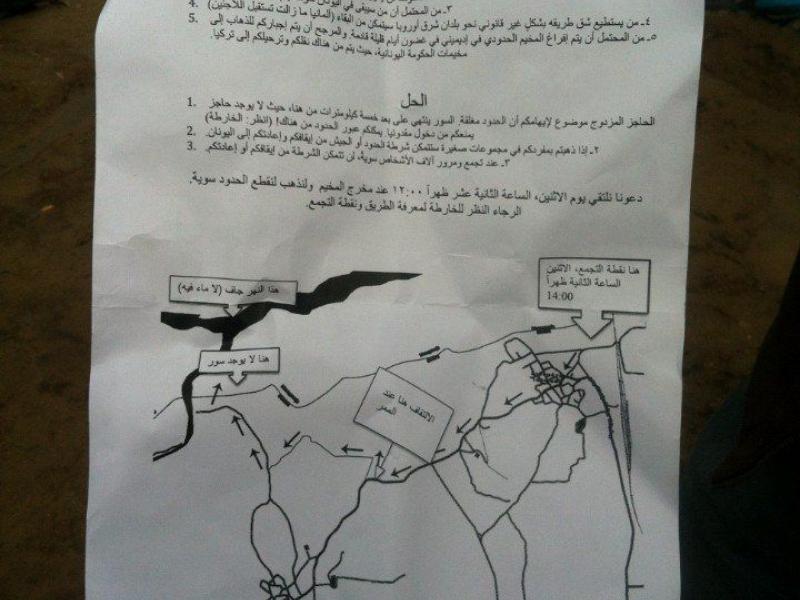 ٣ـ من المحتمل أن من سيبقى في اليونان
٤ـ من يستطيع شق طريقه بشكل غير قانوني نحو بلدان شرق أوروبا سيتمكن من البقاء (ألمانيا ما زالت تستقبل اللاجئين) 4.
٥ـ من المحتمل أن يتم إفراغ المخيم الحدودي في إديميني في غضون أيام قليلة قادمة. والمرجح أن يتم إجباركم للذهاب إلى 5.
مخيمات الحكومة اليونانية، حيث يتم من هناك نقلكم وترحيلكم إلى تركيا.
الحل
الحاجز المزدوج موضوع لإيهامكم أن الحدود مغلقة. السور ينتهي على بعد خمسة كيلومترات من هنا، حيث لا يوجد حاجز 1.
يمنعكم من دخول مقدونيا. يمكنكم عبور الحدود من هناك! (انظر: الخارطة)
٢ـ إذا ذهبتم بمفردكم في مجموعات صغيرة ستتمكن شرطة الحدود أو الجيش من إيقافكم وإعادتكم إلى اليونان. 2.
٣ـ عند تجمع ومرور آلاف الأشخاص سوية، لن تتمكن الشرطة من إيقافكم أو إعادتكم. 3.
دعونا نلتقي يوم الاثنين، الساعة الثانية عشر ظهراً ١٢:٠٠ عند مخرج المخيم ولنذهب لنقطع الحدود سوية.
الرجاء النظر للخارطة لمعرفة الطريق ونقطة التجمع.
هنا نقطة التجمع، الاثنين
الساعة الثانية ظهراً
14:00
هذا النهر جاف (لا ماء فيه)
هنا لا يوجد سور
الالتفاف هنا عند
الممر